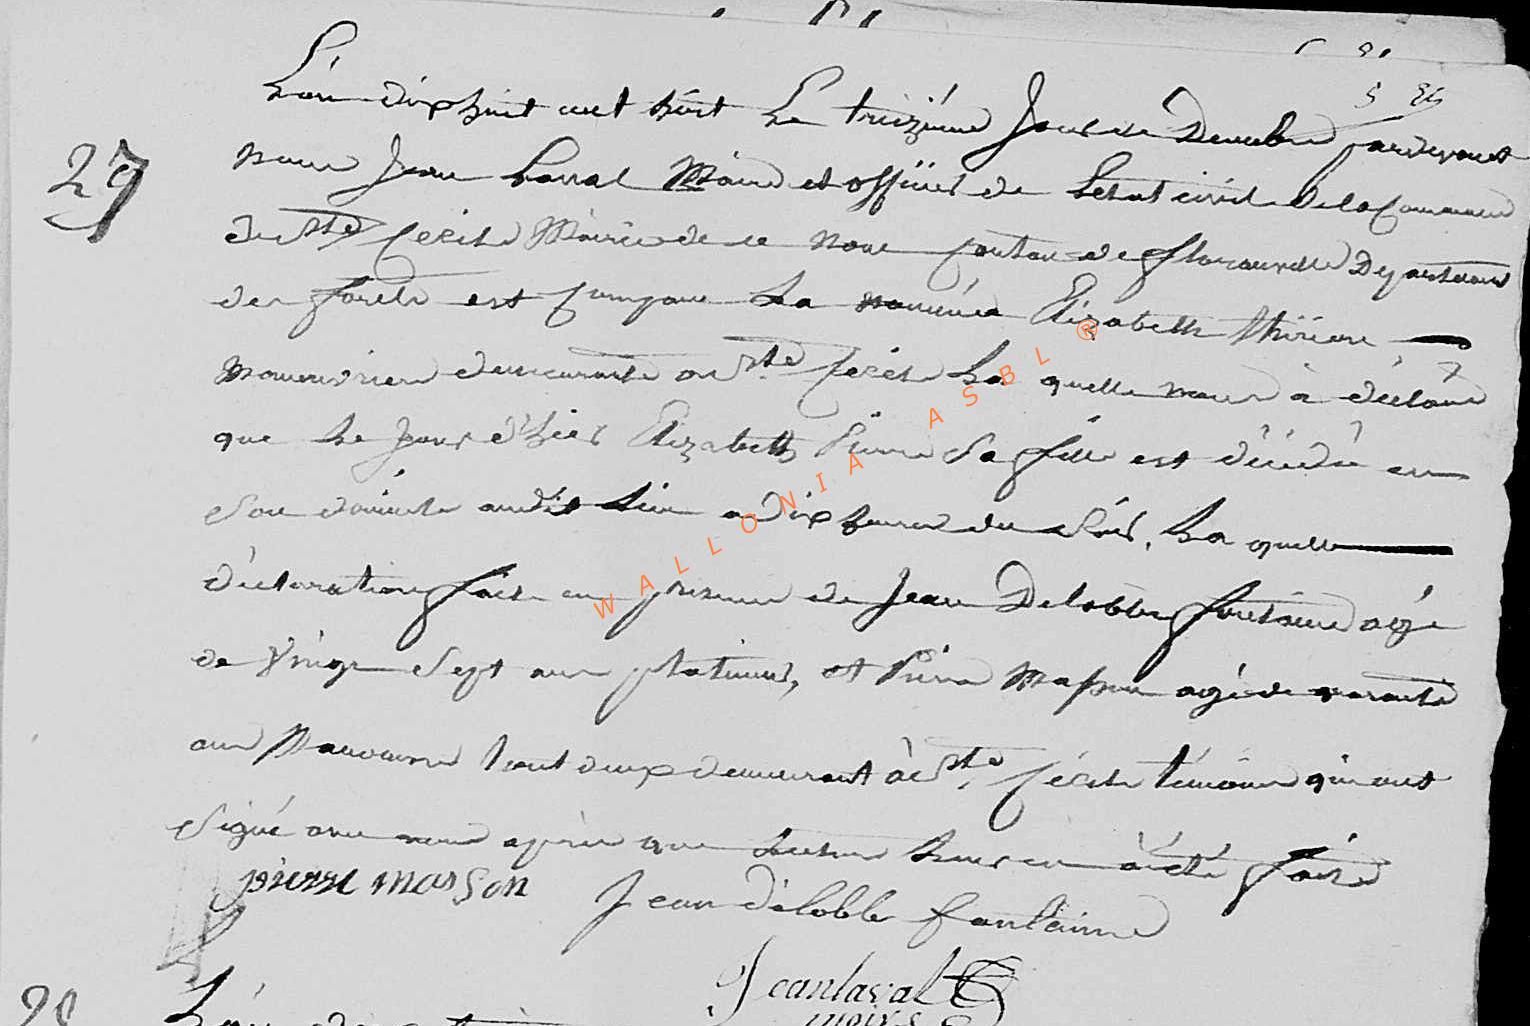 27
L'an dix huit cent huit Le treizieme Jour de Decembre pardevant
nous Jean Laval Maire et officier de Letat civil de la Commune
de Ste Cecile Mairie de ce nom Canton de florenville Departement
des forets est comparu La nommée Elizabeth thiriou
manouvriere demeurante a Ste Cecile La quelle nous à déclaré
que le jour d'hier Elizabeth Pierre Sa fille est décédée en
Son domicile audit lieu a dix heures du soir, La quelle
déclaration faite en presence de Jean Delobbe fontaine agé
de vingt Sept ans platineur, et Pierre Masson agé de quarante
ans Manouvrier tout deux demeurant à Ste Cécile témoins qui ont
Signé avec nous après que lecture leur en à été faite
pierre masson Jean délobbe fontaine
Jean laval
maire
28 L'an
WALLONIA ASBL ®